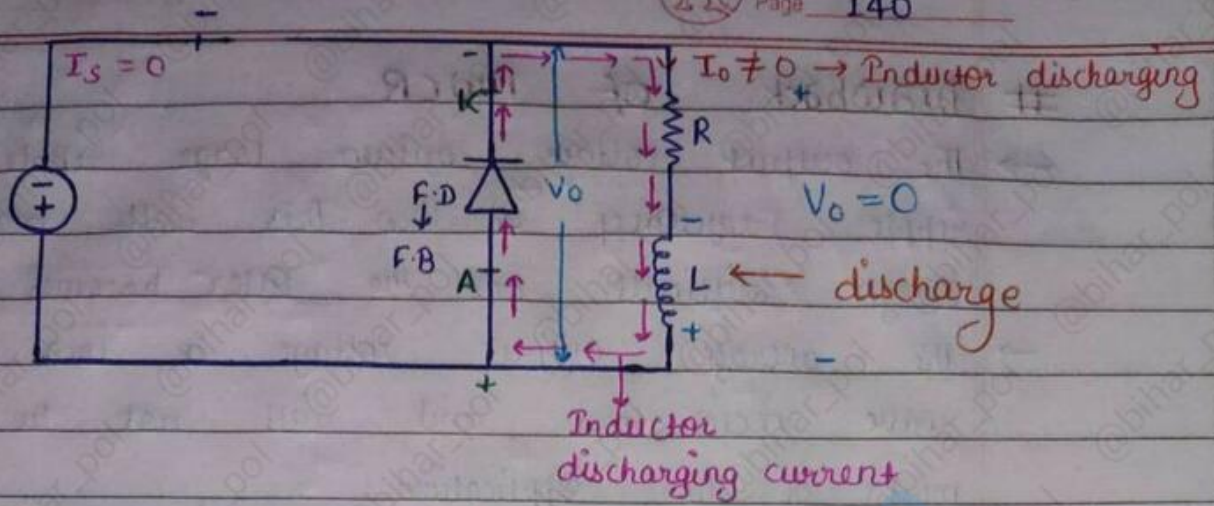 Page 140
−
I_S = 0
− I_0 ≠ 0 → Inductor discharging
K +
R
− +
F.D V_0 V_0 = 0
↓ −
F.B
A L ← discharge
+
−
+
Inductor
discharging current